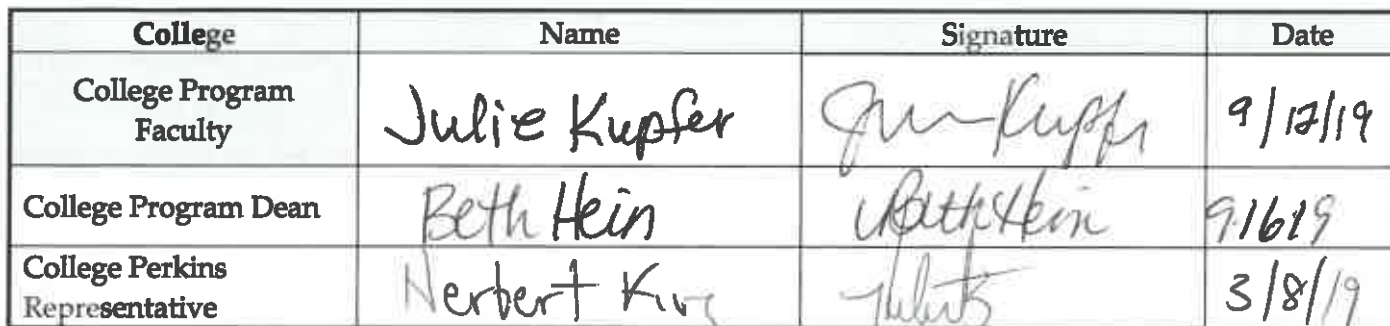 College Name Signature Date
College Program
Faculty
Julie Kupfer Kupfer 9/12/19
College Program Dean Beth Hein Beth Hein 91619
College Perkins
Representative
Herbert 3/8/19